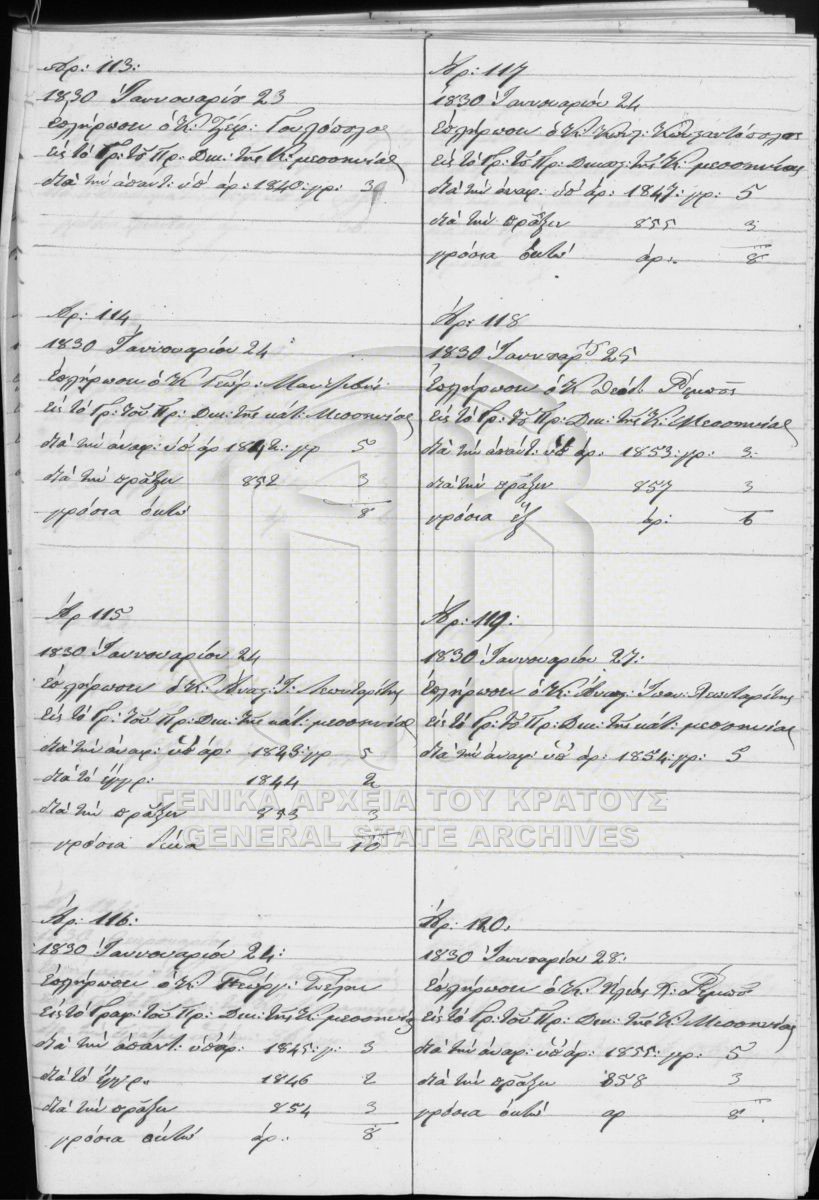 Ἀρ: 113:
1830 Ἰαννουαρίου 23
Ἐπλήρωσεν ὁ Κ:
εἰς τὸ Γρ: τοῦ Πρ: Δικ: τῆς Κ: Μεσσηνίας
διὰ τὴν ἀπάντ: ὑπ' ἀρ: 1840: γρ: 3
Ἀρ: 114
1830 Ἰαννουαρίου 24
Ἐπλήρωσεν ὁ Κ: Γεώρ:
εἰς τὸ Γρ: τοῦ Πρ: Δικ: τῆς κάτ: Μεσσηνίας
διὰ τὴν ἀναφ: ὑπ' ἀρ 1842: γρ 5
διὰ τὴν πρᾶξιν 852 3
γρόσια ὀκτὼ 8
Ἀρ 115
1830 Ἰαννουαρίου 24
Ἐπλήρωσεν ὁ Κ: Ἀναγ: Ἰ: Λεονταρίτης
εἰς τὸ Γρ: τοῦ Πρ: Δικ: τῆς κάτ: μεσσηνίας
διὰ τὴν ἀναφ: ὑπ' ἀρ: 1843: γρ 5
διὰ τὸ ἔγγρ: 1844 2
διὰ τὴν πρᾶξιν 853 3
γρόσια δέκα 10
Ἀρ: 116:
1830 Ἰαννουαρίου 24:
Ἐπλήρωσεν ὁ Κ: Γεώργ:
εἰς τὸ Γραφ: τοῦ Πρ: Δικ: τῆς Κ: μεσσηνίας
διὰ τὴν ἀπάντ: ὑπ' ἀρ: 1845: γ: 3
διὰ τὸ ἔγγρ. 1846 2
διὰ τὴν πρᾶξιν 854 3
γρόσια ὀκτὼ ἀρ: 8
Ἀρ: 117
1830 Ἰαννουαρίου 24
Ἐπλήρωσεν ὁ Κ: Κωνσταντόπολος
εἰς τὸ Γρ: τοῦ Πρ: Δικασ: τῆς Κ: μεσσηνίας
διὰ τὴν ἀναφ: ὑπ' ἀρ: 1847: γρ: 5
διὰ τὴν πρᾶξιν 855 3
γρόσια ὀκτὼ ἀρ: 8
Ἀρ: 118
1830 Ἰανουαρίου 25
Ἐπλήρωσεν ὁ Κ
εἰς τὸ Γρ: τοῦ Πρ: Δικ: τῆς Κ: Μεσσηνίας
διὰ τὴν ἀπάντ: ὑπ' ἀρ: 1853: γρ: 3
διὰ τὴν πρᾶξιν 857 3
γρόσια ἓξ ἀρ: 6
Ἀρ: 119:
1830 Ἰαννουαρίου 27:
Ἐπλήρωσεν ὁ Κ: Ἀναγ: Ἰωαν: Λεονταρίτης
εἰς τὸ Γρ: τοῦ Πρ: Δικ: τῆς κάτ: μεσσηνίας
διὰ τὴν ἀναφ: ὑπ' ἀρ: 1854: γρ: 5
Ἀρ: 120:
1830 Ἰανουαρίου 28:
Ἐπλήρωσεν ὁ Κ: Ἠλίας
εἰς τὸ Γρ: τοῦ Πρ: Δικ: τῆς Κ Μεσσηνίας
διὰ τὴν ἀναφ: ὑπ' ἀρ: 1855: γρ: 5
διὰ τὴν πρᾶξιν 858 3
γρόσια ὀκτὼ αρ 8
ΓΕΝΙΚΑ ΑΡΧΕΙΑ ΤΟΥ ΚΡΑΤΟΥΣ
GENERAL STATE ARCHIVES